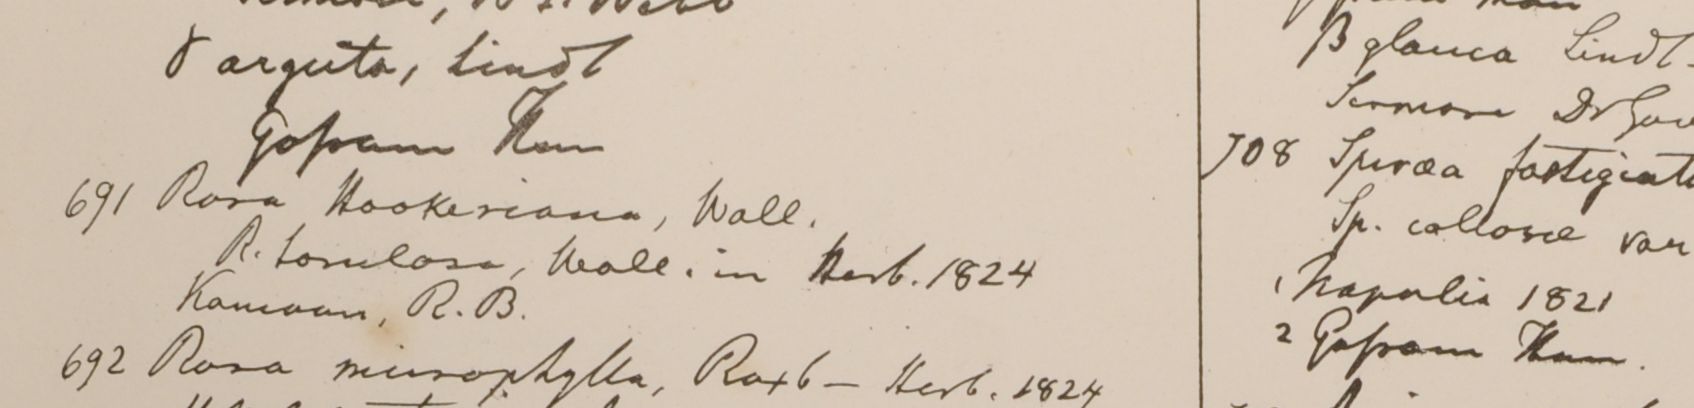 γ arguta, Lindl
Gossam Than
691 Rosa Hookeriana, Wall.
R. torulosa, Wall. in Herb. 1824
Kamoun, R.B.
692 Rosa microphylla, Roxb – Herb. 1824
β glauca Lindl.
Sirmore Dr
708 Spiræa fastigiata
Sp. callosæ var
1 Napalia 1821
2 Gossam Than.